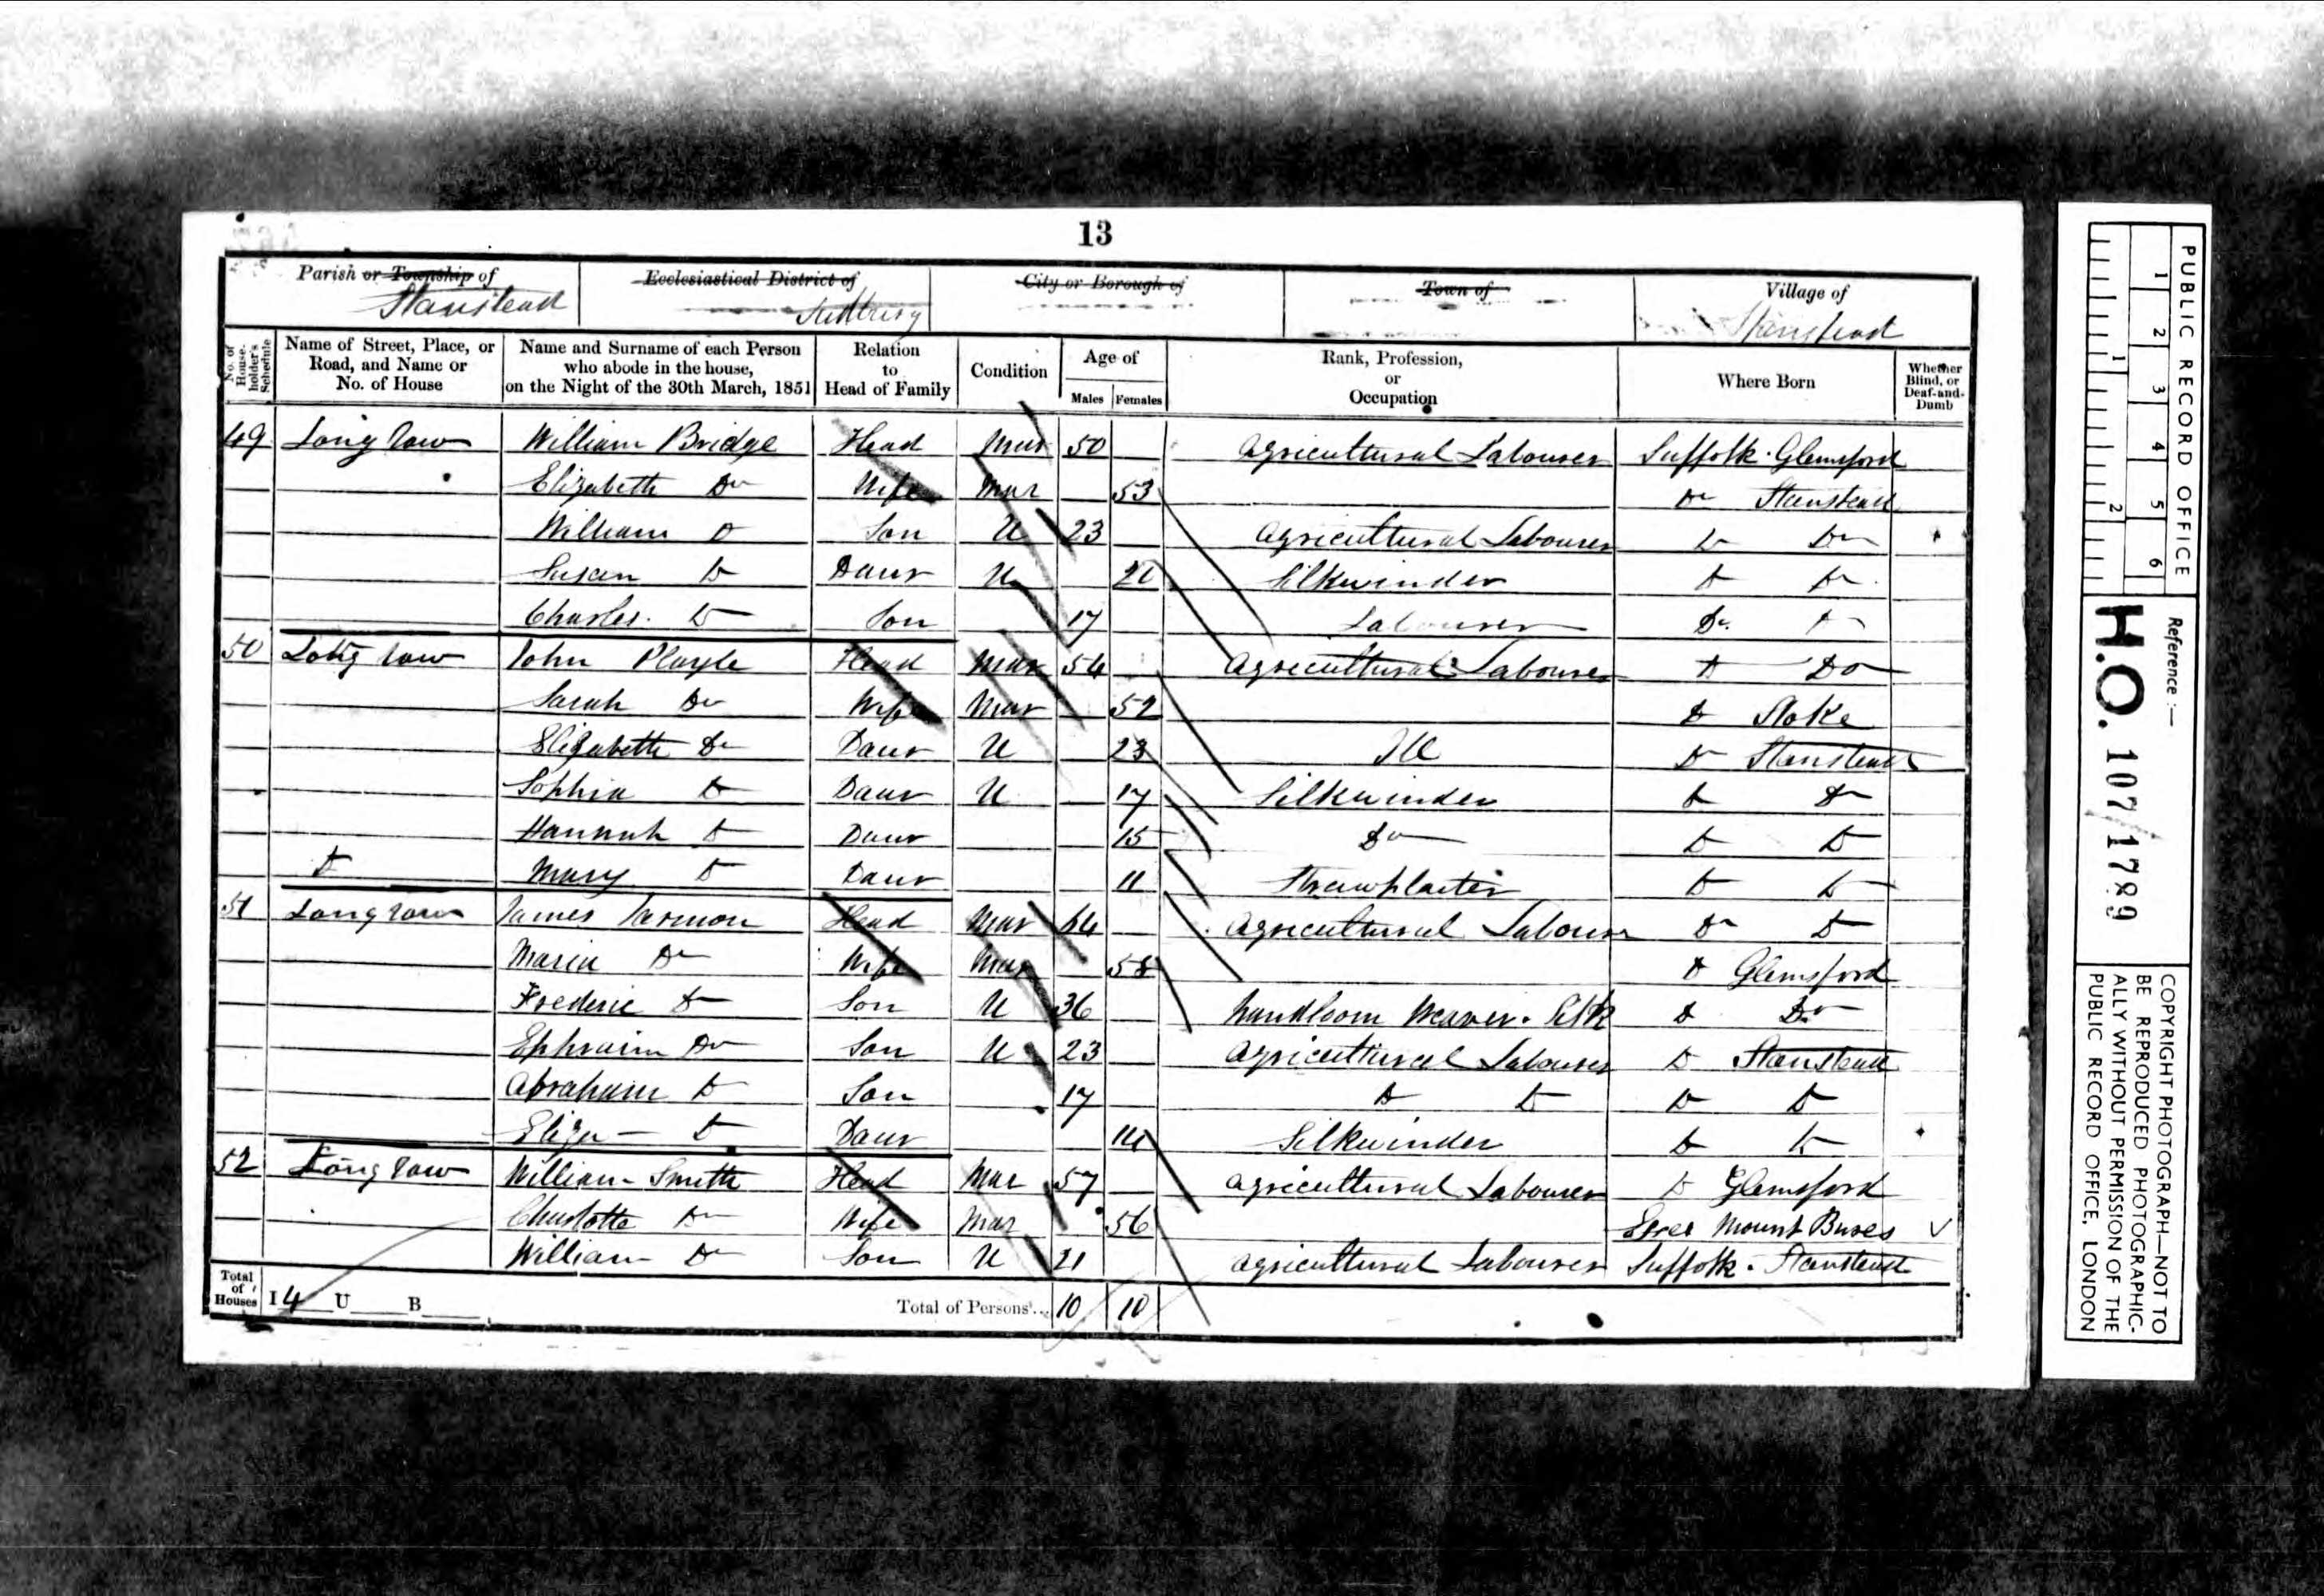 13
Parish or Township of Stanstead Ecclesiastical District of Sudbury City or Borough of Town of Village of Stanstead
No. of House-holder's Schedule Name of Street, Place, or Road, and Name or No. of House Name and Surname of each Person who abode in the house, on the Night of the 30th March, 1851 Relation to Head of Family Condition Age of Males Females Rank, Profession, or Occupation Where Born Whether Blind, or Deaf-and-Dumb
49 Long row William Bridge Head Mar 50 Agricultural Labourer Suffolk Glemsford
Elizabeth Do Wife Mar 53 Do Stanstead
William Do Son U 23 Agricultural Labourer Do Do
Susan Do Daur U 21 Silkwinder Do Do
Charles Do Son 17 Labourer Do Do
50 Long row John Playle Head Mar 54 Agricultural Labourer Do Do
Sarah Do Wife Mar 52 Do Stoke
Elizabeth Do Daur U 23 Ill Do Stanstead
Sophia Do Daur U 17 Silkwinder Do Do
Hannah Do Daur 15 Do Do Do
Do Mary Do Daur 11 Strawplaiter Do Do
51 Long row James Head Mar 64 Agricultural Labourer Do Do
Maria Do Wife Mar 58 Do Glemsford
Frederic Do Son U 36 Handloom Weaver. Silk Do Do
Ephraim Do Son U 23 Agricultural Labourer Do Stanstead
Abraham Do Son 17 Do Do Do Do
Eliza Do Daur 14 Silkwinder Do Do
52 Long row William Smith Head Mar 57 Agricultural Labourer Do Glemsford
Charlotte Do Wife Mar 56 Essex Mount Bures
William Do Son U 21 Agricultural Labourer Suffolk. Stanstead
Total of Houses I 4 U B Total of Persons... 10 10
PUBLIC RECORD OFFICE
1 2 3 4 5 6
1 2
Reference:—
H.O. 107/1789
COPYRIGHT PHOTOGRAPH—NOT TO
BE REPRODUCED PHOTOGRAPHIC-
ALLY WITHOUT PERMISSION OF THE
PUBLIC RECORD OFFICE, LONDON